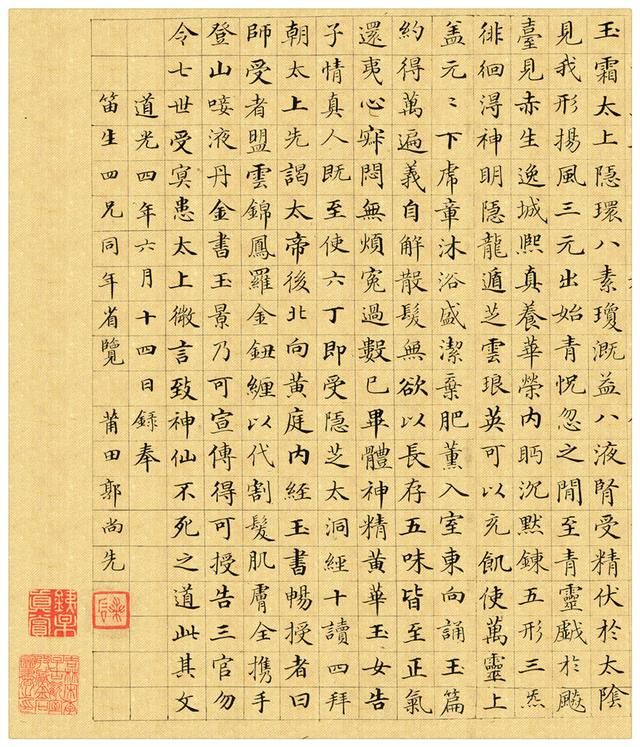 玉霜太上隠環八素瓊溉益八液腎受精伏於太隂
見我形揚風三元出始青怳忽之間至青靈戯於飈
臺見赤生逸城熙真養華榮内眄沉默鍊五形三炁
徘徊淂神明隠龍遁芝雲琅英可以充飢使萬靈上
盖元〻下帍章沐浴盛潔棄肥薰入室東向誦玉篇
約得萬遍義自解散髮無欲以長存五味皆至正氣
還夷心寂悶無煩寃過數已畢體神精黄華玉女告
子情真人既至使六丁即受隠芝太洞經十讀四拜
朝太上先謁太帝後北向黄庭内經玉書暢授者曰
師受者盟雲錦鳳羅金鈕纏以代割髮肌膚全携手
登山唼液丹金書玉景乃可宣傳得可授告三官勿
令七世受冥患太上微言致神仙不死之道此其文
道光四年六月十四日録奉
笛生四兄同年省覽 莆田郭尚先